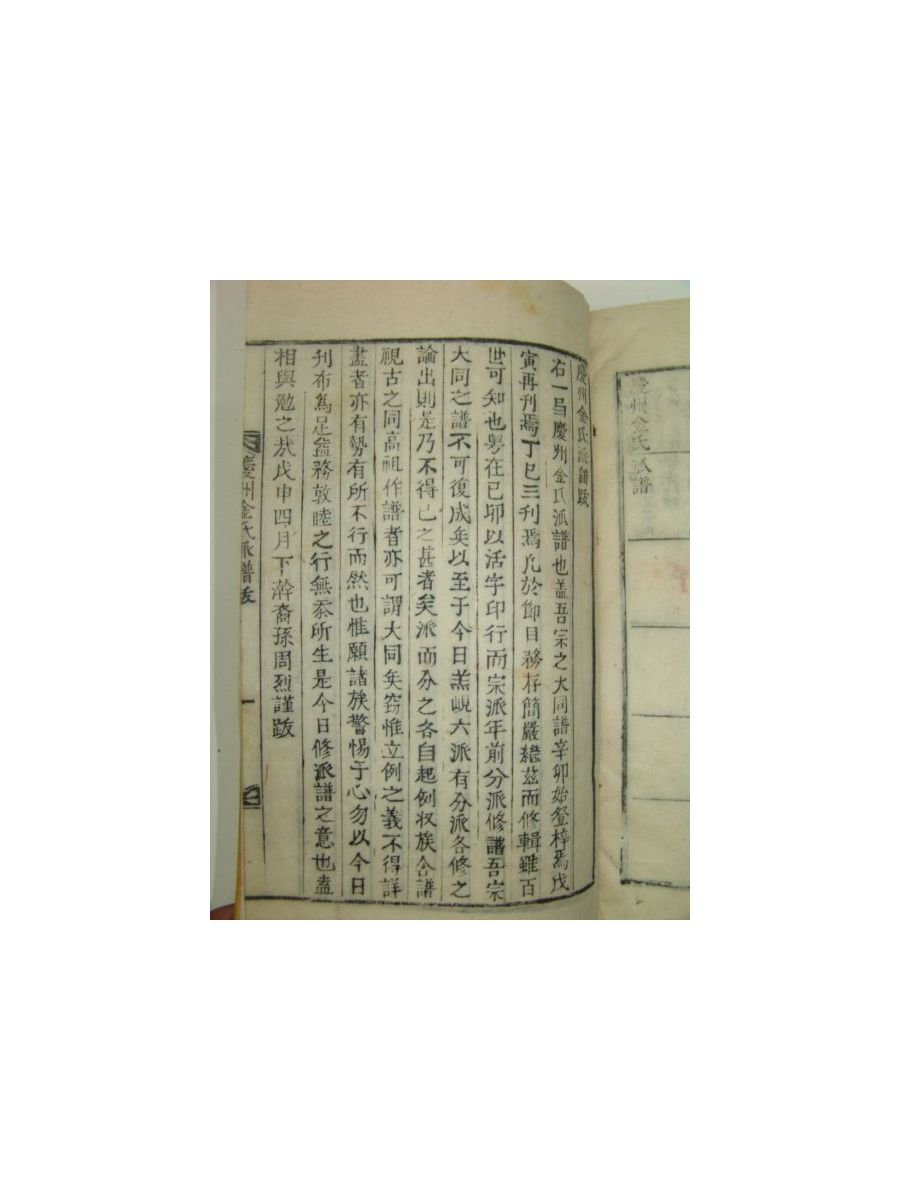 慶州金氏派譜
慶州金氏派譜跋
右一局慶州金氏派譜也盖吾宗之大同譜辛卯始登梓焉戊
寅再刊焉丁巳三刊焉凡於節目務存簡嚴繼玆而修輯雖百
世可知也粤在己卯以活字印行而宗派年前分派修譜吾宗
大同之譜不可復成矣以至于今日羔峴六派有分派各修之
論出則是乃不得已之甚者矣派而分之各自起例收族合譜
視古之同高祖作譜者亦可謂大同矣窃惟立例之義不得詳
盡者亦有勢有所不行而然也惟願諸族警惕于心勿以今日
刊布爲足益務敦睦之行無忝所生是今日修派譜之意也盍
相與勉之㢤戊申四月下澣裔孫周烈謹跋
慶州金氏派譜跋 一